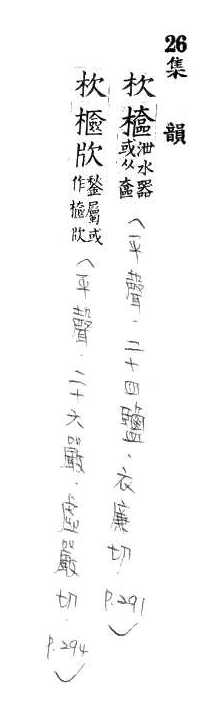 26集韻
杴㰊泄水器或从㰊〈平聲.二十四鹽.衣廉切.P.291〉
杴櫙㰟鍫屬或作櫙㰟〈平聲.二十六嚴.虛嚴切.P.294〉